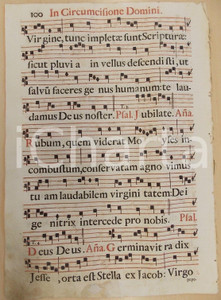 100 In Circumcisione Domini.
Virgine, tunc impletæ sunt Scripturæ:
sicut pluvi a in vellus descendi sti, ut
salvũ faceres ge nus humanũ: te lau-
damus Deus noster. Psal. Jubilate. Aña.
Rubum, quem viderat Mo yses in-
combustum, conservatam agno vimus
tu am laudabilem virgini tatem: Dei
ge nitrix intercede pro nobis. Psal.
Deus Deus. Aña. Germinavit ra dix
Jesse, orta est Stella ex Jacob: Virgo